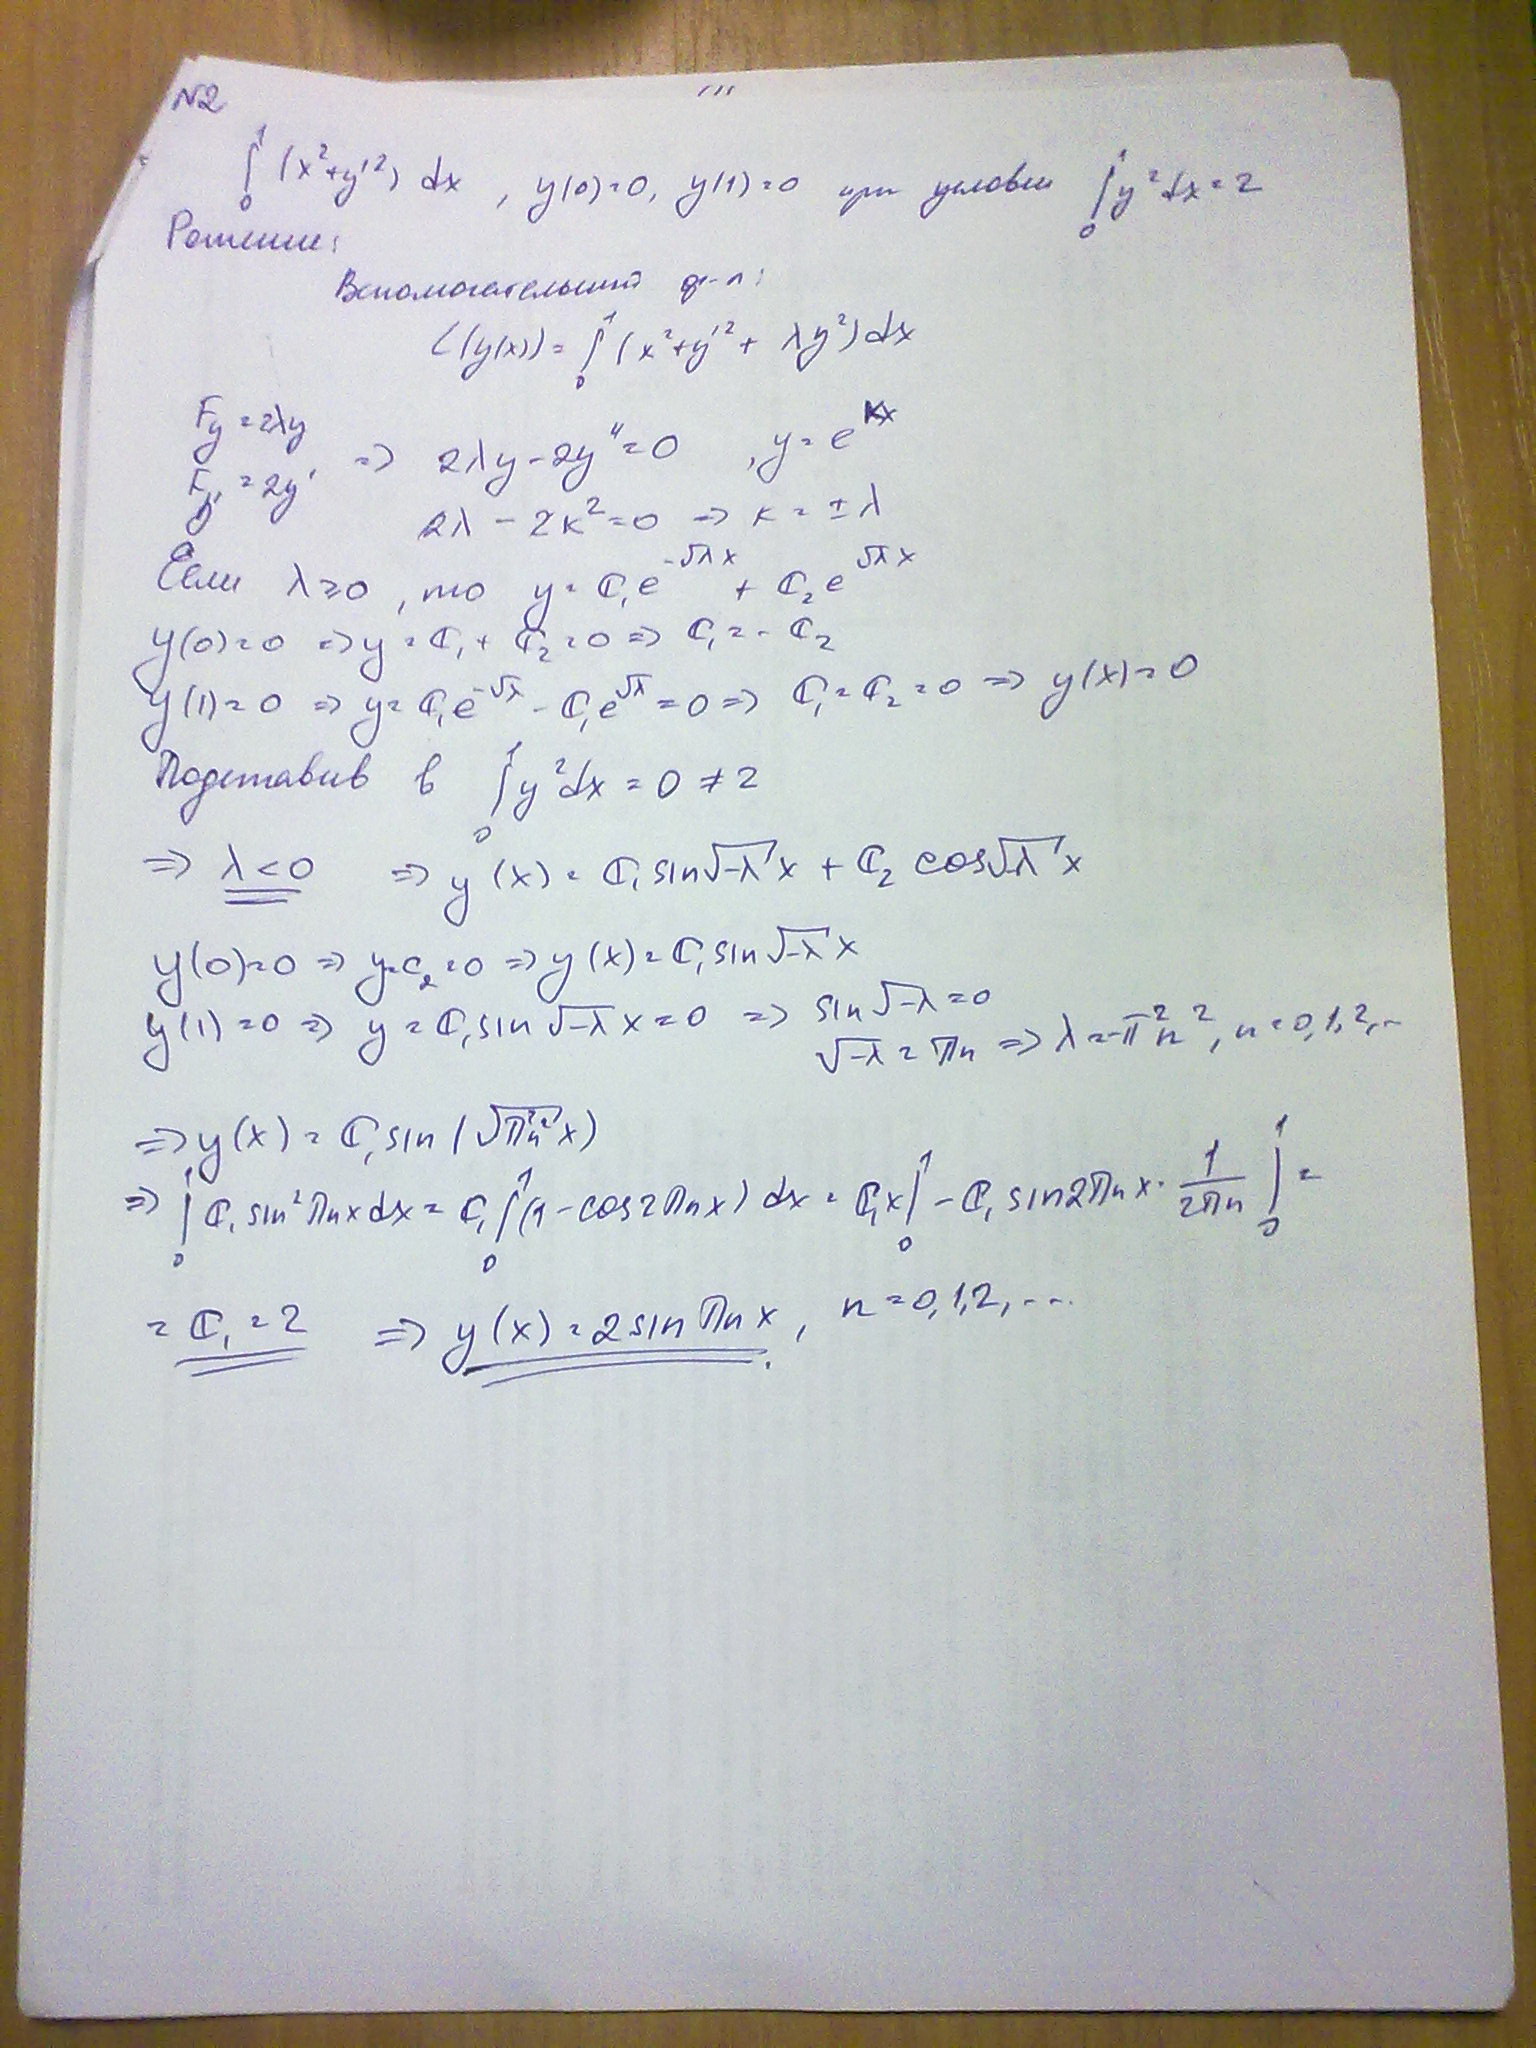 №2
∫₀¹ (x²+y'²) dx , y(0)=0, y(1)=0 при условии ∫₀¹ y² dx = 2
Решение:
Вспомогательный ф-л:
L(y(x)) = ∫₀¹ (x²+y'²+ λy²) dx
F_y = 2λy
F_y' = 2y' => 2λy - 2y'' = 0 , y = e^{kx}
2λ - 2k² = 0 => k = ± λ
Если λ≥0 , то y = C₁e^{-√λ x} + C₂e^{√λ x}
y(0)=0 => y = C₁ + C₂ = 0 => C₁ = - C₂
y(1)=0 => y = C₁e^{-√λ} - C₁e^{√λ} = 0 => C₁ = C₂ = 0 => y(x) = 0
Подставив в ∫₀¹ y² dx = 0 ≠ 2
=> λ < 0 => y(x) = C₁ sin√-λ x + C₂ cos√-λ x
y(0)=0 => y=C₂=0 => y(x) = C₁ sin √-λ x
y(1)=0 => y = C₁ sin √-λ x = 0 => sin √-λ = 0
√-λ = πn => λ = -π²n², n = 0,1,2,...
=> y(x) = C₁ sin(√π²n² x)
=> ∫₀¹ C₁ sin² πnx dx = C₁ ∫₀¹ (1 - cos2πnx) dx = C₁x |₀¹ - C₁ sin2πnx · 1/2πn |₀¹ =
= C₁ = 2 => y(x) = 2 sin πnx , n = 0,1,2,...